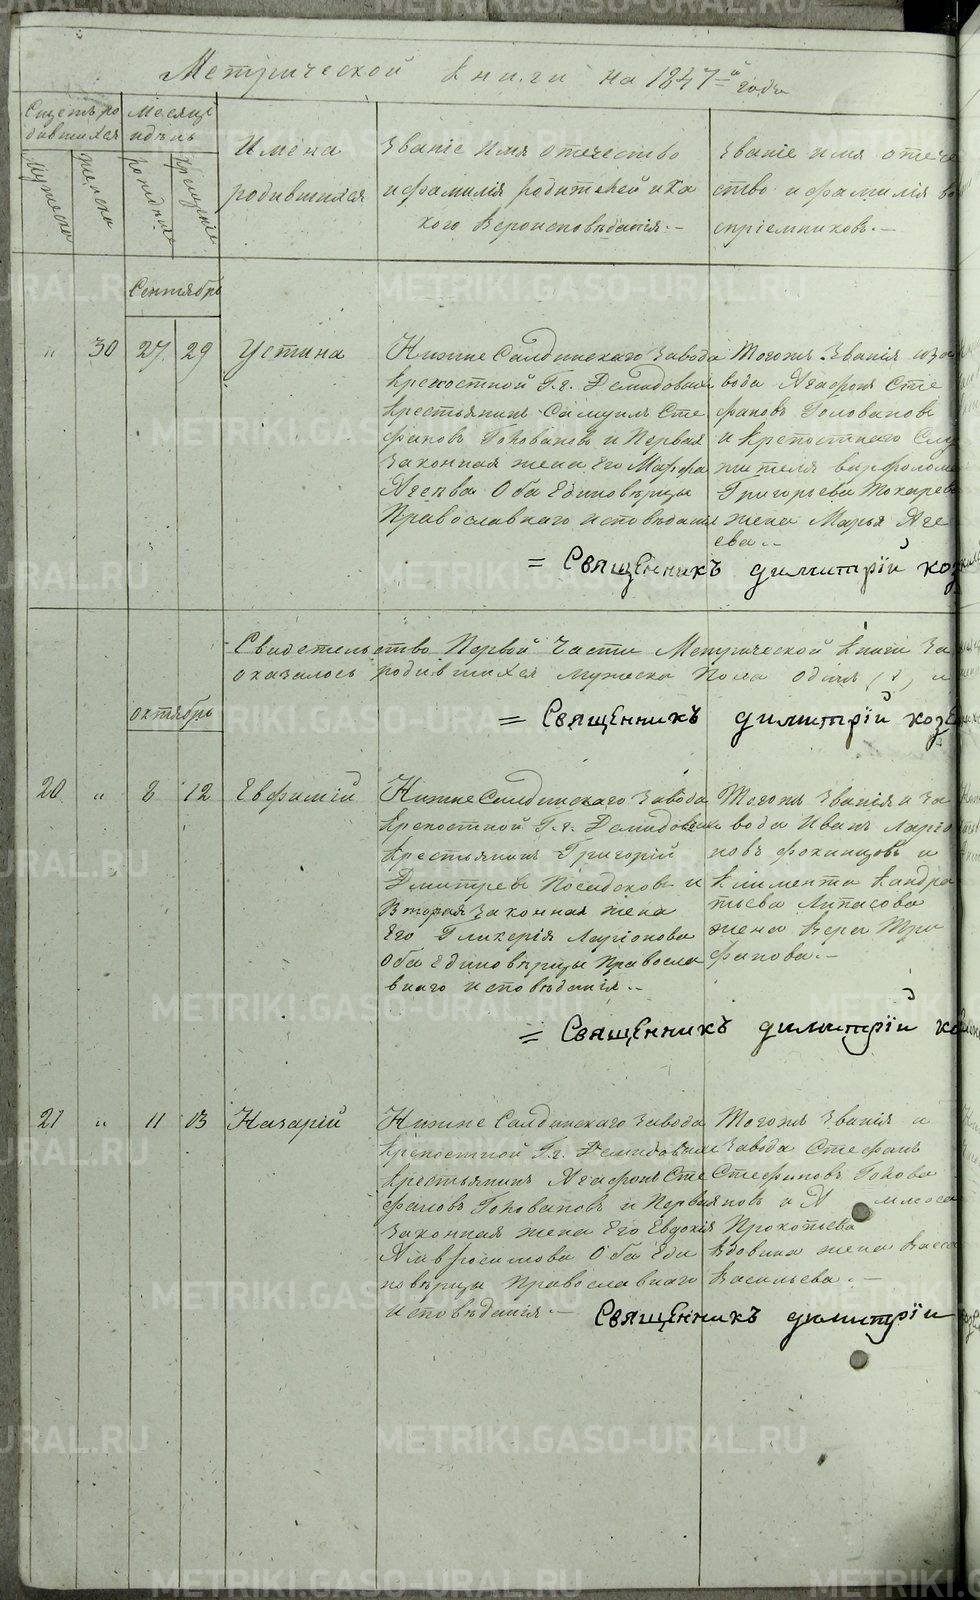 Метрической книги на 1847-й годъ
Счетъ ро
дившихся
Мужеска
Женска
Месяцъ
и день
рождения
крещение
Имена
родившихся
Званіе имя отечество
и фамилія родителей и ка
кого вероисповѣданія.-
Званіе имя отече
ство и фамилія во
спріемниковъ.-
Сентябрь
" 30 27 29 Устина
Нижне Салдинскаго завода
крепостной Г.г. Демидовыхъ
крестьянинъ Самуилъ Сте
фановъ Головановъ и первая
законная жена его Марфа
Агеева Оба единовѣрцы
Православнаго исповѣданія
Тогожъ Званія и за
вода Агафонъ Сте
фановъ Головановъ
и крепостнаго Слу
жителя Варфоломе
Григорьева Токарева
жена Марья Аге
ева..
= Священникъ Димитрій Коз
Свидетельство Первой Части Метрической книги За
оказалось родившихся мужеска пола один (1) и
= Священникъ Димитрій Козе
октябрь
20 " 8 12 Евфимій
Нижне Салдинскаго завода
крепостной Г.г. Демидовыхъ
крестьянинъ Григорій
Дмитревъ Посадсковъ и
вторая законная жена
его Гликерія Ларіонова
Оба единовѣрцы Правосла
внаго исповѣданія..
Тогожъ Званія и за
вода Иванъ Ларіо
новъ и
Климента Кандра
тьева
жена Вера Три
фанова.-
= Священникъ Димитрій Ко
21 " 11 13 Назарій
Нижне Салдинскаго завода
крепостной Г.г. Демидовыхъ
крестьянинъ Агафонъ Сте
фановъ Головановъ и первая
законная жена его Евдокія
Амвросимова Оба еди
новѣрцы Православнаго
исповѣданія.-
Тогожъ Званія и
завода Стефанъ
Стефановъ Голова
новъ и
Прокопьева
вдовина жена Васса
Васильева.-
Священникъ Димитрій
METRIKI.GASO-URAL.RU